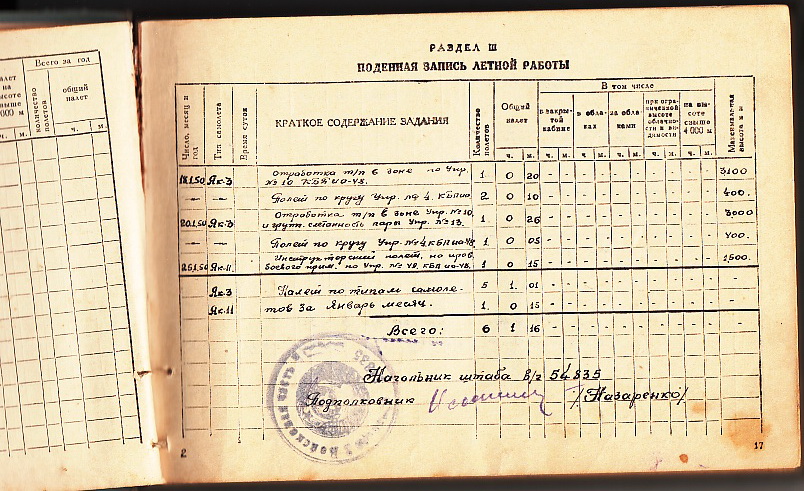 Всего за год
общий налет
количество полетов
ч. м.
РАЗДЕЛ III
ПОДЕННАЯ ЗАПИСЬ ЛЕТНОЙ РАБОТЫ
Число, месяц и год
Тип самолета
Время суток
КРАТКОЕ СОДЕРЖАНИЕ ЗАДАНИЯ
Количество полетов
Общий налет
В том числе
в закрытой кабине
в облаках
за облаками
при ограниченной высоте облачности и видимости
на высоте свыше 4 000 м
Максимальная высота в м
ч. м. ч. м. ч. м. ч. м. ч. м. ч. м.
18.1.50 Як-3 Отработка т/п в зоне по Упр. № 10 КБП ИА-48. 1 0 20 - - - - - - - - - - 3100
-"- -"- Полет по кругу Упр. № 4. КБП ИА 2 0 10 - - - - - - - - - - 400.
20.1.50 Як-3 Отработка т/п в зоне Упр. № 10, и групп. слетанность пары Упр. № 13. 1 0 26 - - - - - - - - - - 3000
-"- -"- Полет по кругу Упр. № 4 КБП ИА-48 1. 0 05 - - - - - - - - - - 400.
25.1.50 Як-11. Инструкторский полет, на пров. боевого прим. по Упр. № 48. КБП ИА-48. 1 0 15 - - - - - - - - - - 1500.
Як-3 Налет по типам самоле- 5 1. 01 - - - - - - - - - - -
Як-11 тов за Январь месяц. 1. 0 15 - - - - - - - - - - -
Всего: 6 1 16 - - - - - - - - - - -
Начальник штаба в/ч 54835
Подполковник /Назаренко/
2
17